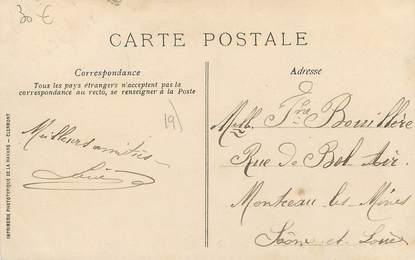 30 €
CARTE POSTALE
Correspondance
Tous les pays étrangers n'acceptent pas la
correspondance au recto, se renseigner à la Poste
19)
Meilleurs amitiés
Louis
Adresse
Melle Fne Bouillère
Rue de Bel Air.
Montceau les Mines
Saône et Loire
IMPRIMERIE PHOTOTYPIQUE DE LA HAVANE — CLERMONT